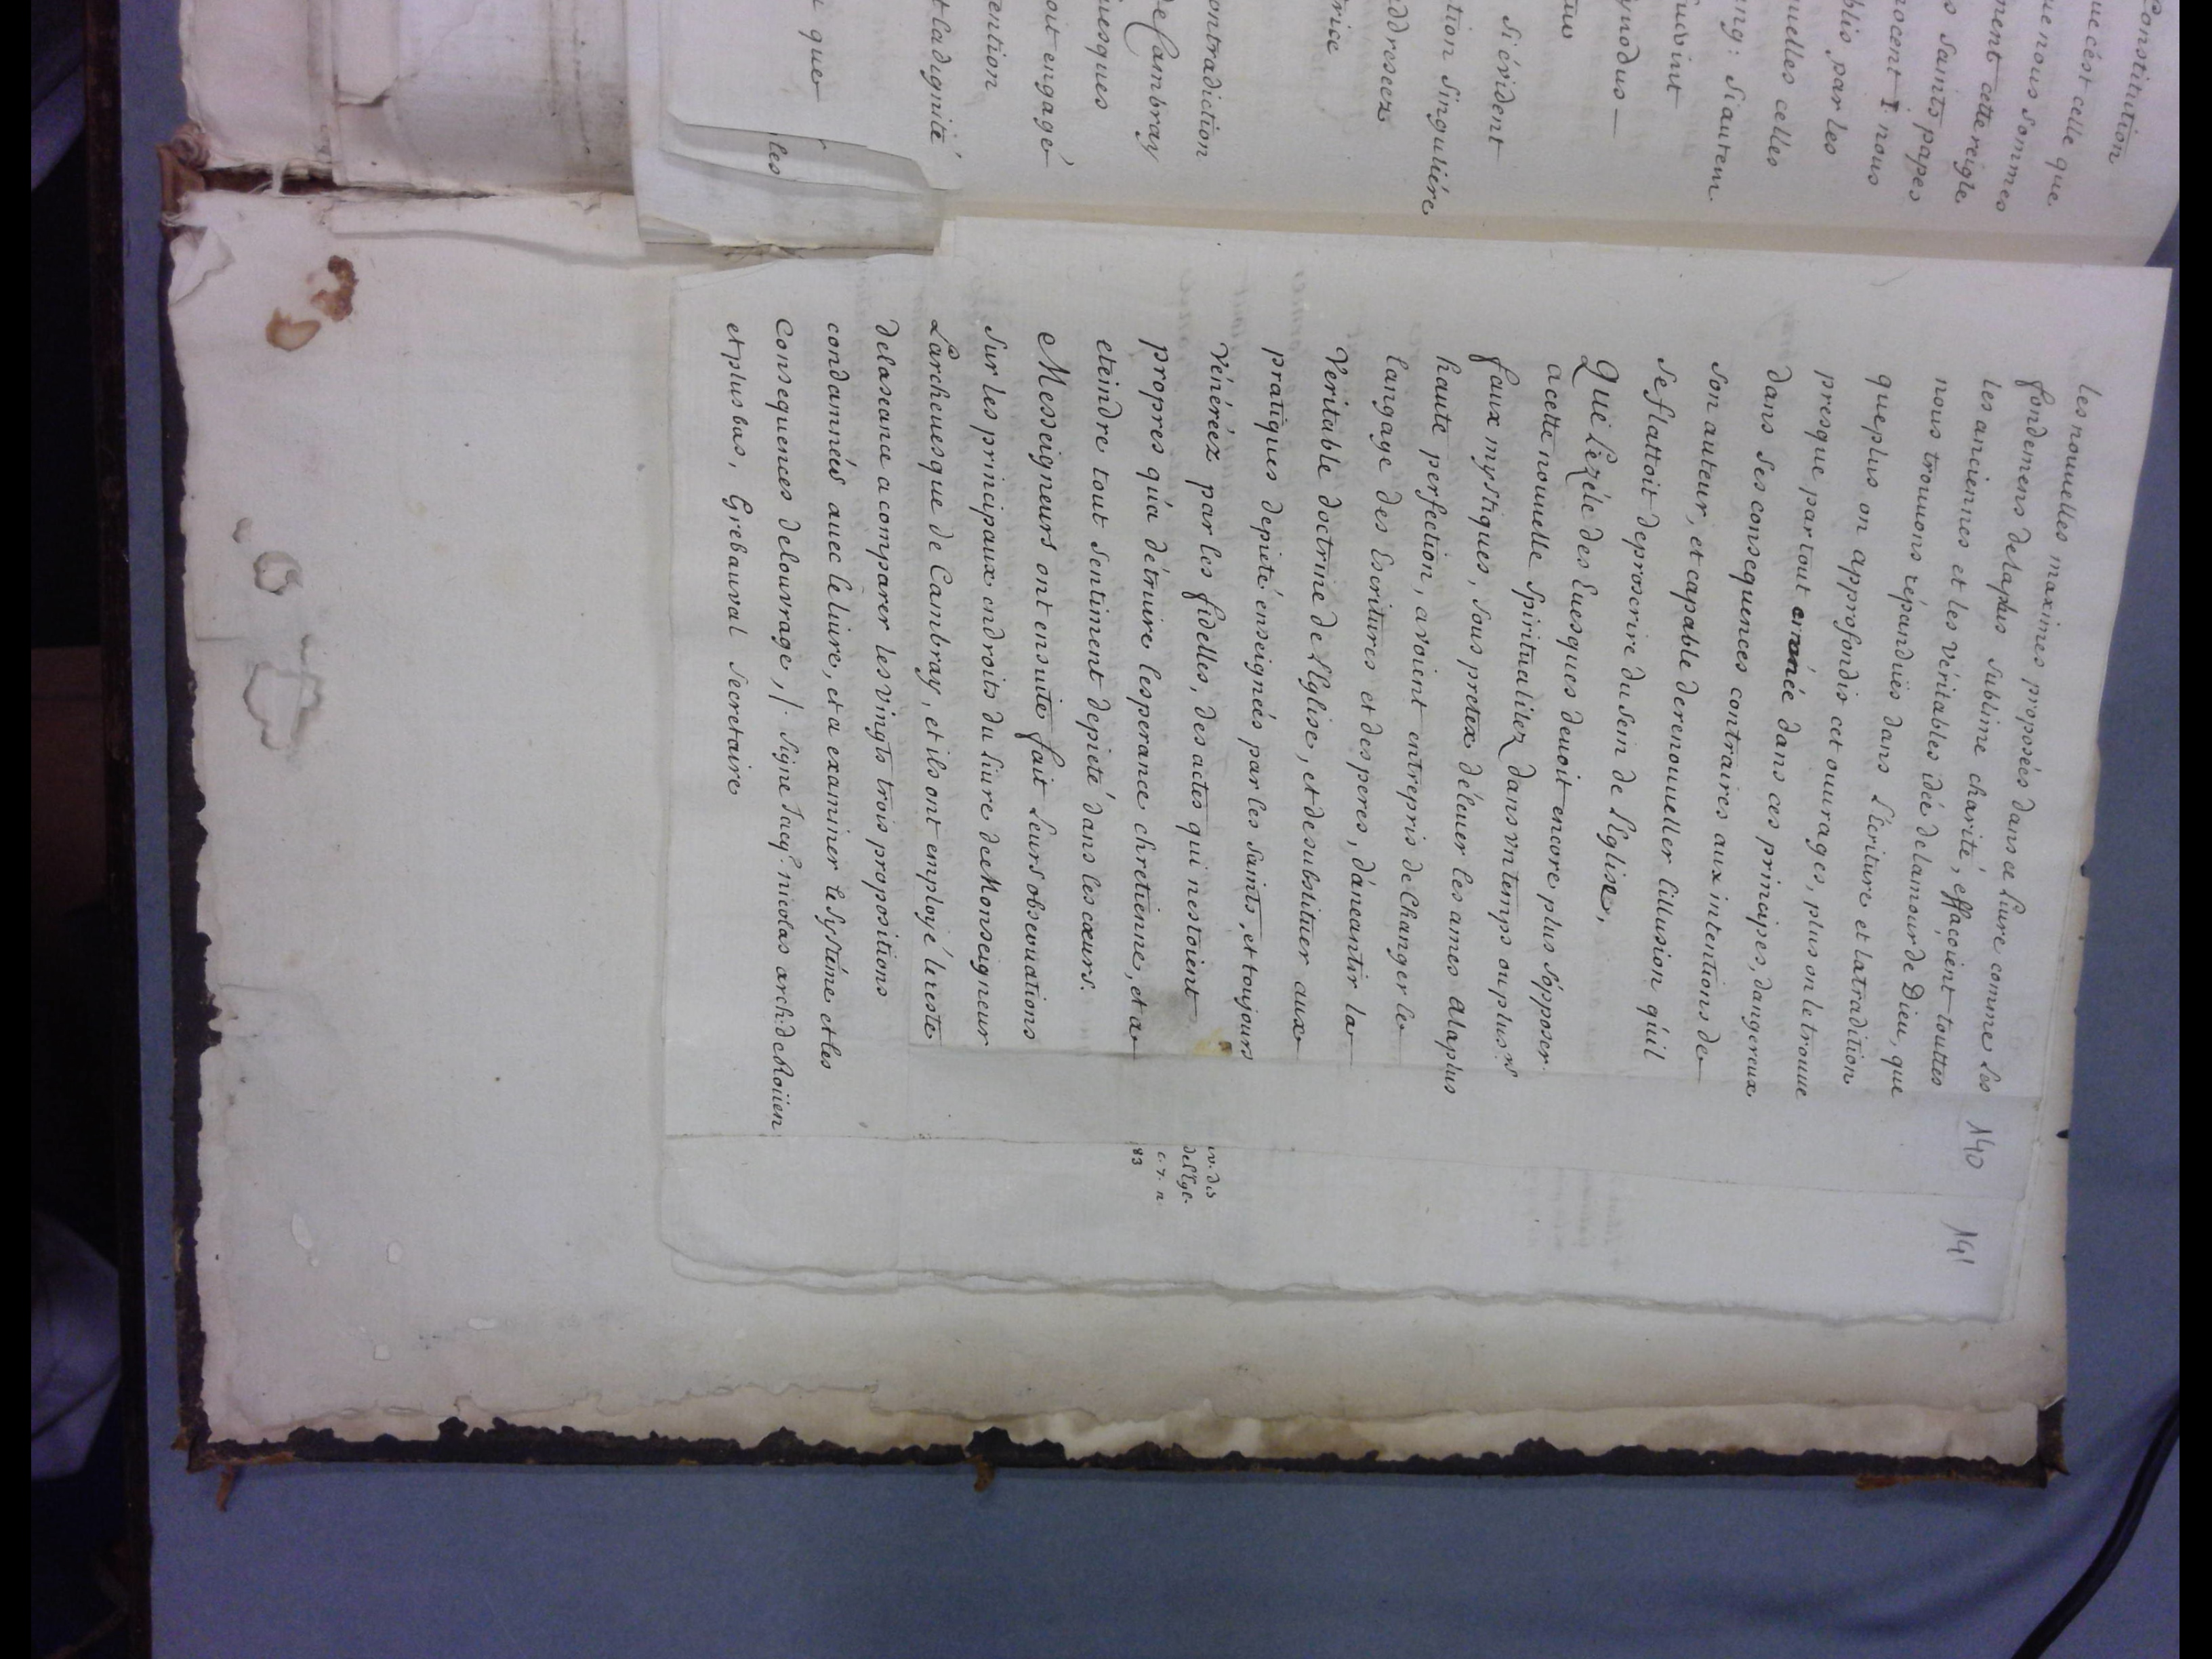 Constitution
que c'est celle que
que nous sommes
ment cette reigle
s saints papes
nocent I. nous
blis par les
nuelles celles
ang: Si autem
fuerint
ynodus —
si évident
tion singuliére
addressez
trice
contradiction
de Cambray
uesques
oit engagé
ention
t la dignité
que
les
les nouuelles maximes proposées dans ce Liure comme les
fondemens delaplus sublime charité, effaçoient touttes
les anciennes et les véritables idée delamour de Dieu, que
nous trouuons répanduës dans L'écriture et latradition
queplus on approfondis cet ouurages, plus on le trouue
presque partout erroné dans ces principes, dangereux
dans ses consequences contraires aux intentions de
son auteur, et capable derenouueller l'illusion qu'il
se flattoit deproscrire du sein de L'Eglise,
Que Le zéle des Euesques deuoit encore plus s'opposer
a cette nouuelle spiritualitez dans vn temps ou plusrs
faux mystiques, sous pretex déleuer les ames alaplus
haute perfection, avoient entrepris de Changer le
langage des Escritures et des peres, d'aneantir la
Veritable doctrine de L'Eglise, et desubstituer aux
pratiques depieté enseignées par les saints, et toujours
Vénéréez par les fidelles, des actes qui nestoient
propres qu'a détruire l'esperance chretienne, et a
eteindre tout sentiment depieté dans les cœurs.
Messeigneurs ont ensuite fait Leurs obseruations
sur les principaux endroits du Liure de Monseigneur
L'archeuesque de Cambray, et ils ont employé le reste
delaseance a comparer les vingts trois propositions
condamnées auec le liure, et a examiner le Systéme et les
Consequences delouvrage, /. signe Jacq. nicolas arch: de Roüen
et plus bas, Grebauval Secretaire
140
141
de l'Egl.
c. 7. n
83